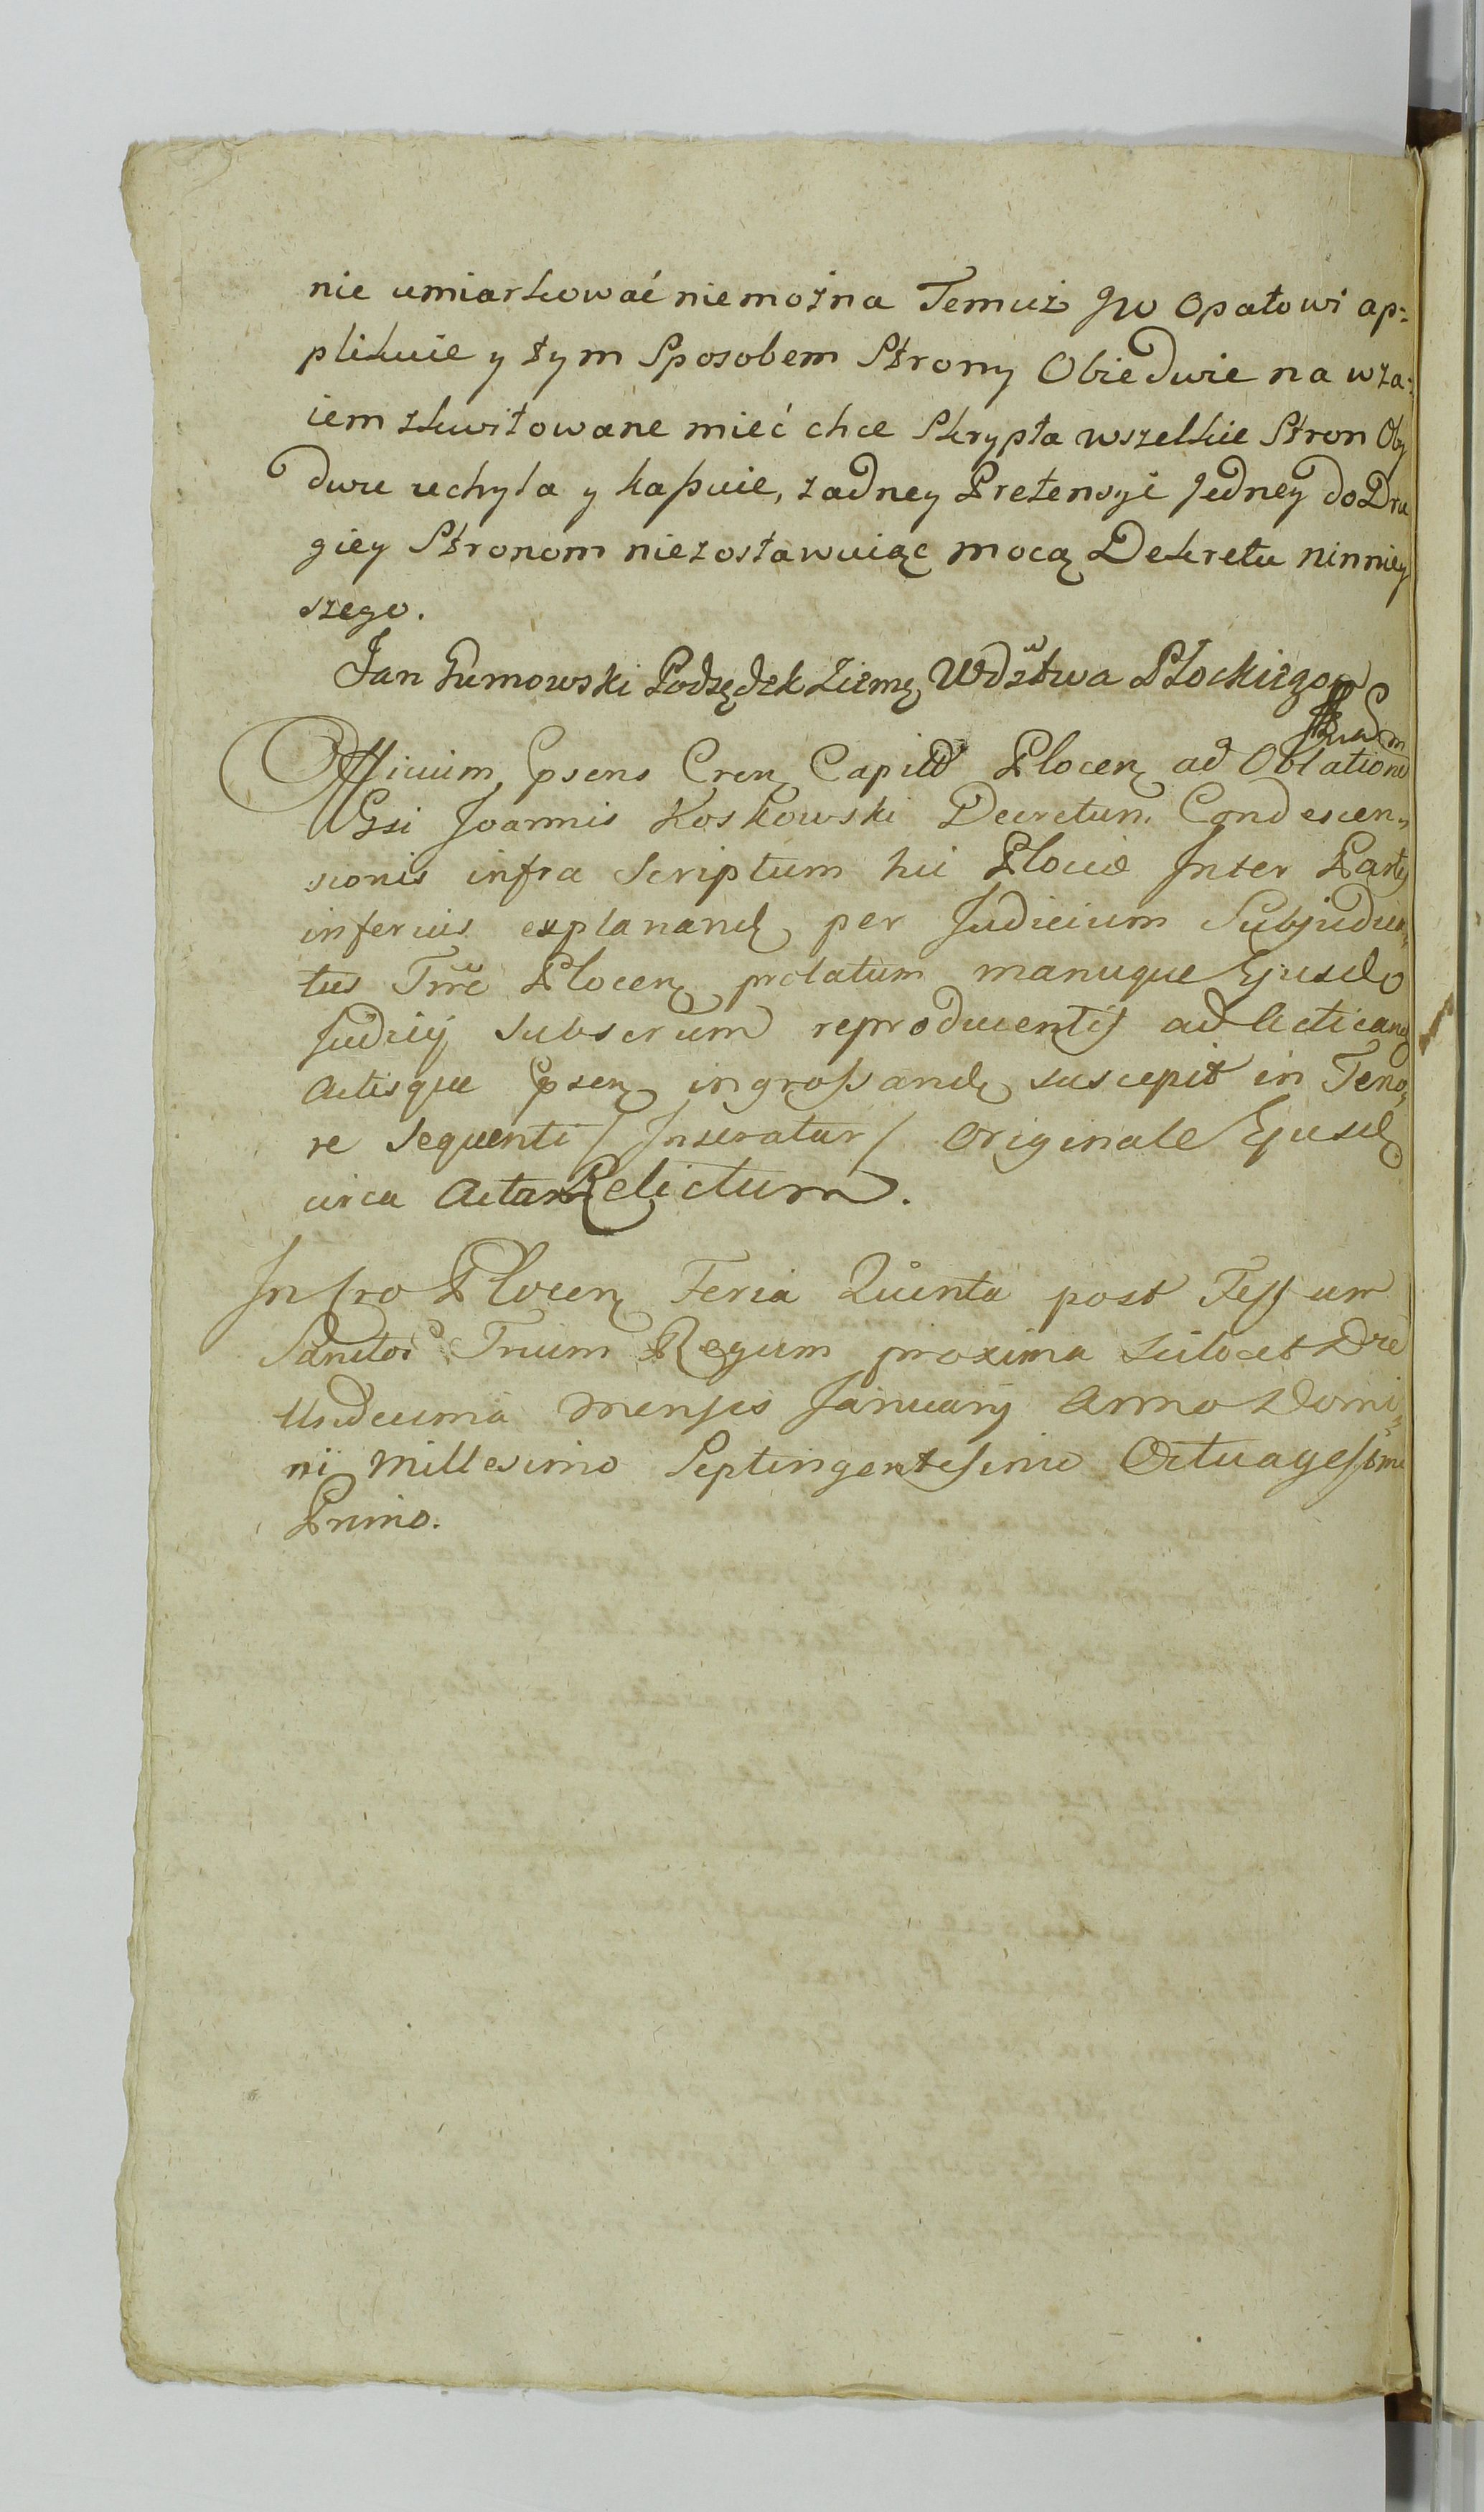 nie umiarkować niemożna Temuż JW Opatowi ap=
plikuie y tym Sposobem Strony Obiedwie na wza=
iem zkwitowane mieć chce Skrypta wszelkie Stron Oby
dwu uchyla y kaßuie, żadney Pretensyi Jedney do Dru
giey Stronom niezostawuiąc mocą Dekretu ninniey
szego.
Jan Gumowski Podsędek Ziems Wdztwa Płockiego
Officium psens Cren Capit Plocen ad Oblationē
Gsi Joannis Koskowski Decretum Condescen=
sionis infra Scriptum hic Plociæ Inter Partes
inferius explanand per Judicium Subjudica=
tus Trrē Plocen prolatum manuque Ejusd
Judicij Subscrum reproducentis ad Acticand
Actisque psen ingroßand suscepit in Teno=
re Sequenti / Inseratur / Originale Ejusd
circa Acta Relictum.
In Cro Plocen Feria Quinta post Festum
Sanctor Trium Regum proxima scilicet Die
Undecima Mensis Januarij Anno Domi=
ni Millesimo Septingentesimo Octuagesimo
Primo.